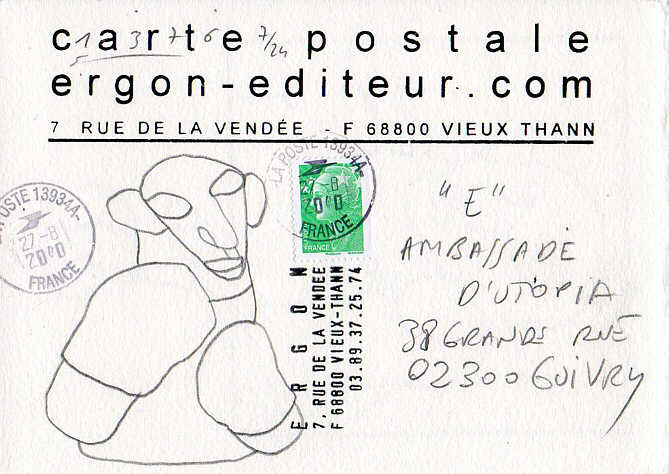 carte postale
1 3 7 6 7/24
ergon-editeur.com
7 RUE DE LA VENDÉE - F 68800 VIEUX THANN
LA POSTE 13934A-
27-8
FRANCE
"E"
AMBASSADE
D'UTOPIA
38 GRANDE RUE
02300 GUIVRY
LA POSTE 13934A-
27-8
FRANCE
ERGON
7, RUE DE LA VENDEE
F 68800 VIEUX-THANN
03.89.37.25.74